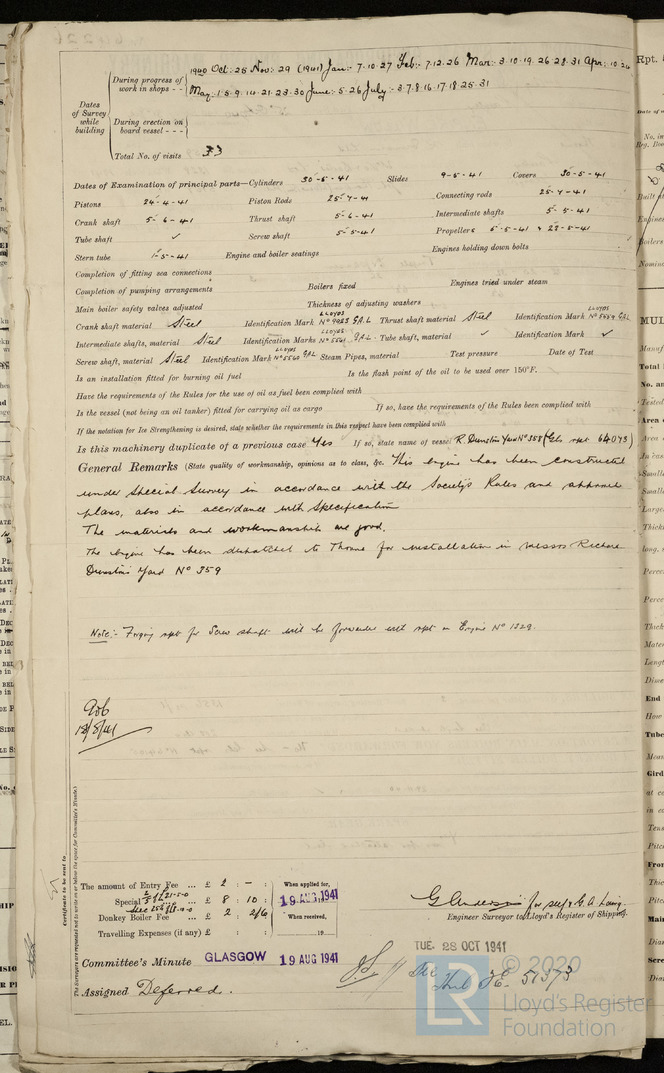 1940 Oct:- 25 Nov:- 29 (1941) Jan:- 7.10.27 Feb:- 7.12.26 Mar:- 3.10.19.26.28.31 Apr:- 10.24
During progress of work in shops - -
May:- 1.5.9.14.21.23.30 June:- 5.26 July:- 3.7.8.16.17.18.25.31
Dates of Survey while building
During erection on board vessel - - -
Total No. of visits 33
Dates of Examination of principal parts—Cylinders 30-5-41 Slides 9-5-41 Covers 30-5-41
Pistons 24-4-41 Piston Rods 25-7-41 Connecting rods 25-7-41
Crank shaft 5-6-41 Thrust shaft 5-6-41 Intermediate shafts 5-5-41
Tube shaft ✓ Screw shaft 5-5-41 Propellers 5-5-41 & 23-5-41
Stern tube 1-5-41 Engine and boiler seatings Engines holding down bolts
Completion of fitting sea connections
Completion of pumping arrangements Boilers fixed Engines tried under steam
Main boiler safety valves adjusted Thickness of adjusting washers
Crank shaft material Steel Identification Mark LLOYDS Nº 9983 G.A.L Thrust shaft material Steel Identification Mark LLOYDS G.A.L
Intermediate shafts, material Steel Identification Marks LLOYDS Nº 5561 G.A.L Tube shaft, material ✓ Identification Mark ✓
Screw shaft, material Steel Identification Mark LLOYDS Nº 5560 G.A.L Steam Pipes, material Test pressure Date of Test
Is an installation fitted for burning oil fuel Is the flash point of the oil to be used over 150°F.
Have the requirements of the Rules for the use of oil as fuel been complied with
Is the vessel (not being an oil tanker) fitted for carrying oil as cargo If so, have the requirements of the Rules been complied with
If the notation for Ice Strengthening is desired, state whether the requirements in this respect have been complied with
Is this machinery duplicate of a previous case Yes If so, state name of vessel R. Dunston Yard Nº 358 (Gls rpt 64073)
General Remarks (State quality of workmanship, opinions as to class, &c. This engine has been constructed
under Special Survey in accordance with the Society's Rules and approved
plans, also in accordance with Specification
The materials and workmanship are good.
The engine has been despatched to Thorne for installation in Messrs Richard
Dunston's Yard Nº 359
Note:- Forging rpt for Screw shaft will be forwarded with rpt on Engine Nº 1329.
Certificate to be sent to
The Surveyors are requested not to write on or below the space for Committee's Minute.
The amount of Entry Fee ... £ 2 : - : When applied for,
Special £ 8 : 10 : 19 AUG 1941
Donkey Boiler Fee ... £ 2 : 2/6 When received,
Travelling Expenses (if any) £ : : 19
G Anderson for self & G. A. Laing
Engineer Surveyor to Lloyd's Register of Shipping.
Committee's Minute GLASGOW 19 AUG 1941
TUE. 28 OCT 1941
Assigned Deferred.
© 2020
LR Lloyd's Register Foundation
Rpt.